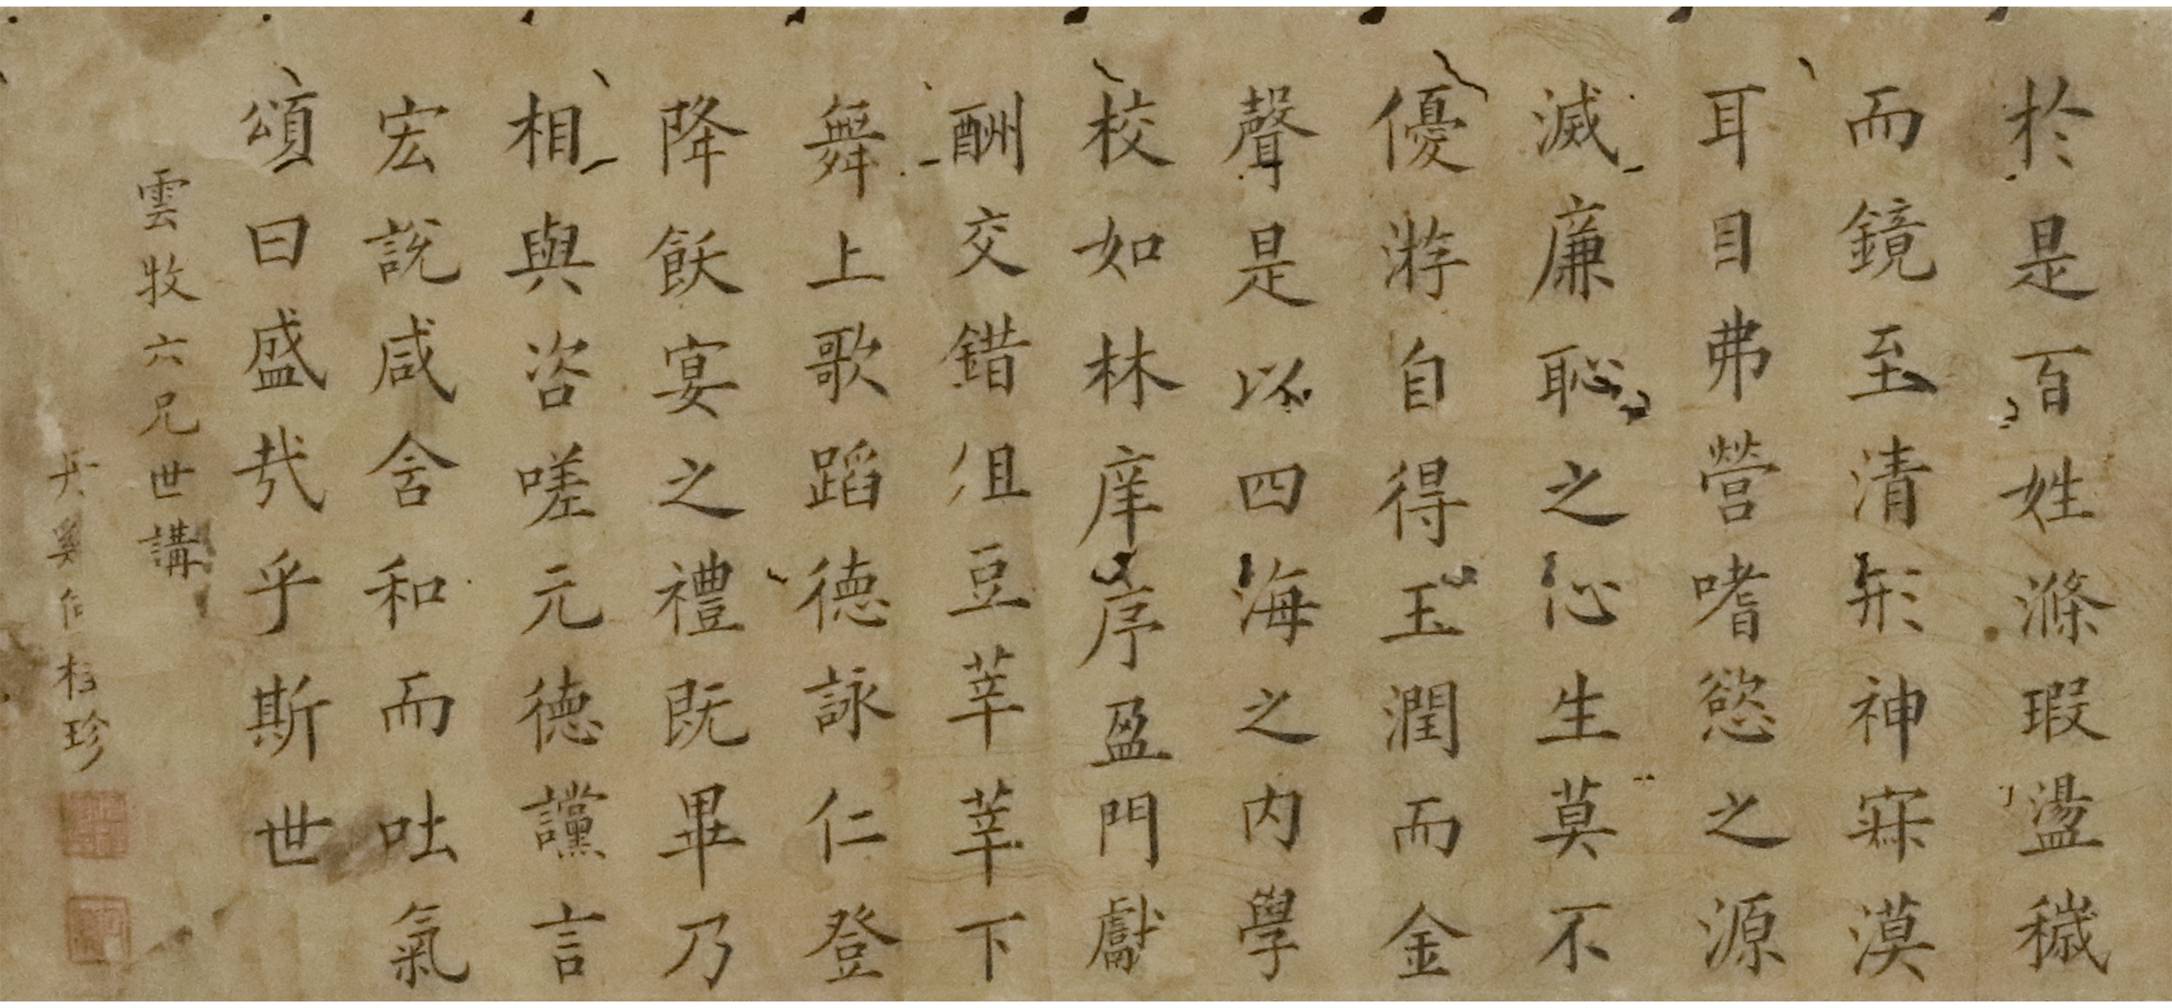 於是百姓滌瑕盪穢
而鏡至清形神寂漠
耳目弗營嗜慾之源
滅廉恥之心生莫不
優游自得玉潤而金
聲是以四海之内學
校如林庠序盈門獻
酬交錯俎豆莘莘下
舞上歌蹈德詠仁登
降飫宴之禮既畢乃
相與咨嗟元德讜言
宏說咸含和而吐氣
頌曰盛哉乎斯世
雲牧六兄世講
珍